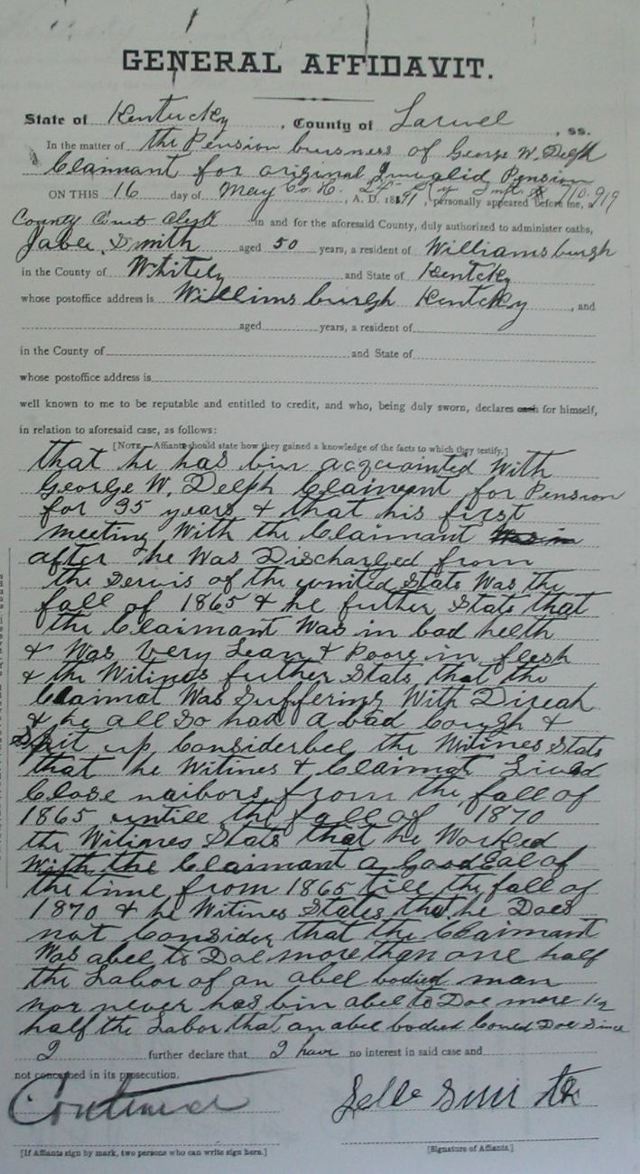 GENERAL AFFIDAVIT.
State of Kentucky, County of Laurel, ss.
In the matter of the Pension buisness of George W. Delph
Claimant for original Invalid Pension
ON THIS 16 day of May Co. H. A. D. 1891, personally appeared before me, a
County Court Clerk in and for the aforesaid County, duly authorized to administer oaths,
Smith aged 50 years, a resident of Williamsburgh
in the County of Whitley and State of Kentcky
whose postoffice address is Williamsburgh Kentcky, and
aged years, a resident of
in the County of and State of
whose postoffice address is
well known to me to be reputable and entitled to credit, and who, being duly sworn, declares each for himself,
in relation to aforesaid case, as follows:
[NOTE.—Affiants should state how they gained a knowledge of the facts to which they testify.]
that he has bin acquainted With
George W. Delph Claimant for Pension
for 35 years & that his first
meeting With the Claimant Was in
after he Was Discharged from
the servis of the united Stats Was the
fall of 1865 & he futher Stats that
the Claimant Was in bad helth
& Was very Lean & Poore in flesh
& the Witines futher Stats that the
Claimat Was Suffering With Direah
& he all So had a bad Cough &
Spit up Considerbel the Witines Stats
that he Witines & Claimat Lived
Close naibors from the fall of
1865 untill the fall of 1870
the Witines Stats that he Worked
With the Claimant a Good Eal of
the time from 1865 till the fall of
1870 & he Witines States that he Does
not Consider that the Claimant
Was abel to Doe more than one half
the Labor of an abel bodied man
nor never has bin abel to Doe more
half the Labor that an abel bodied Coued Doe Since
I further declare that I have no interest in said case and
not concerned in its prosecution.
[If Affiants sign by mark, two persons who can write sign here.] [Signature of Affiants.]